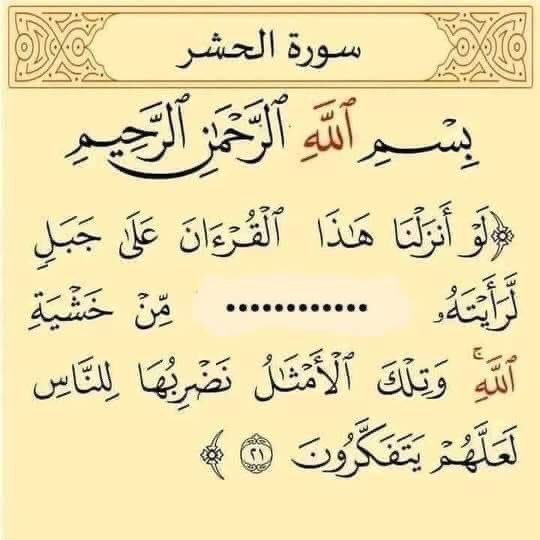 سورة الحشر
بِسْمِ ٱللَّهِ ٱلرَّحْمَٰنِ ٱلرَّحِيمِ
﴿لَوْ أَنزَلْنَا هَٰذَا ٱلْقُرْءَانَ عَلَىٰ جَبَلٍ
لَّرَأَيْتَهُۥ ............ مِّنْ خَشْيَةِ
ٱللَّهِۚ وَتِلْكَ ٱلْأَمْثَٰلُ نَضْرِبُهَا لِلنَّاسِ
لَعَلَّهُمْ يَتَفَكَّرُونَ ٢١﴾